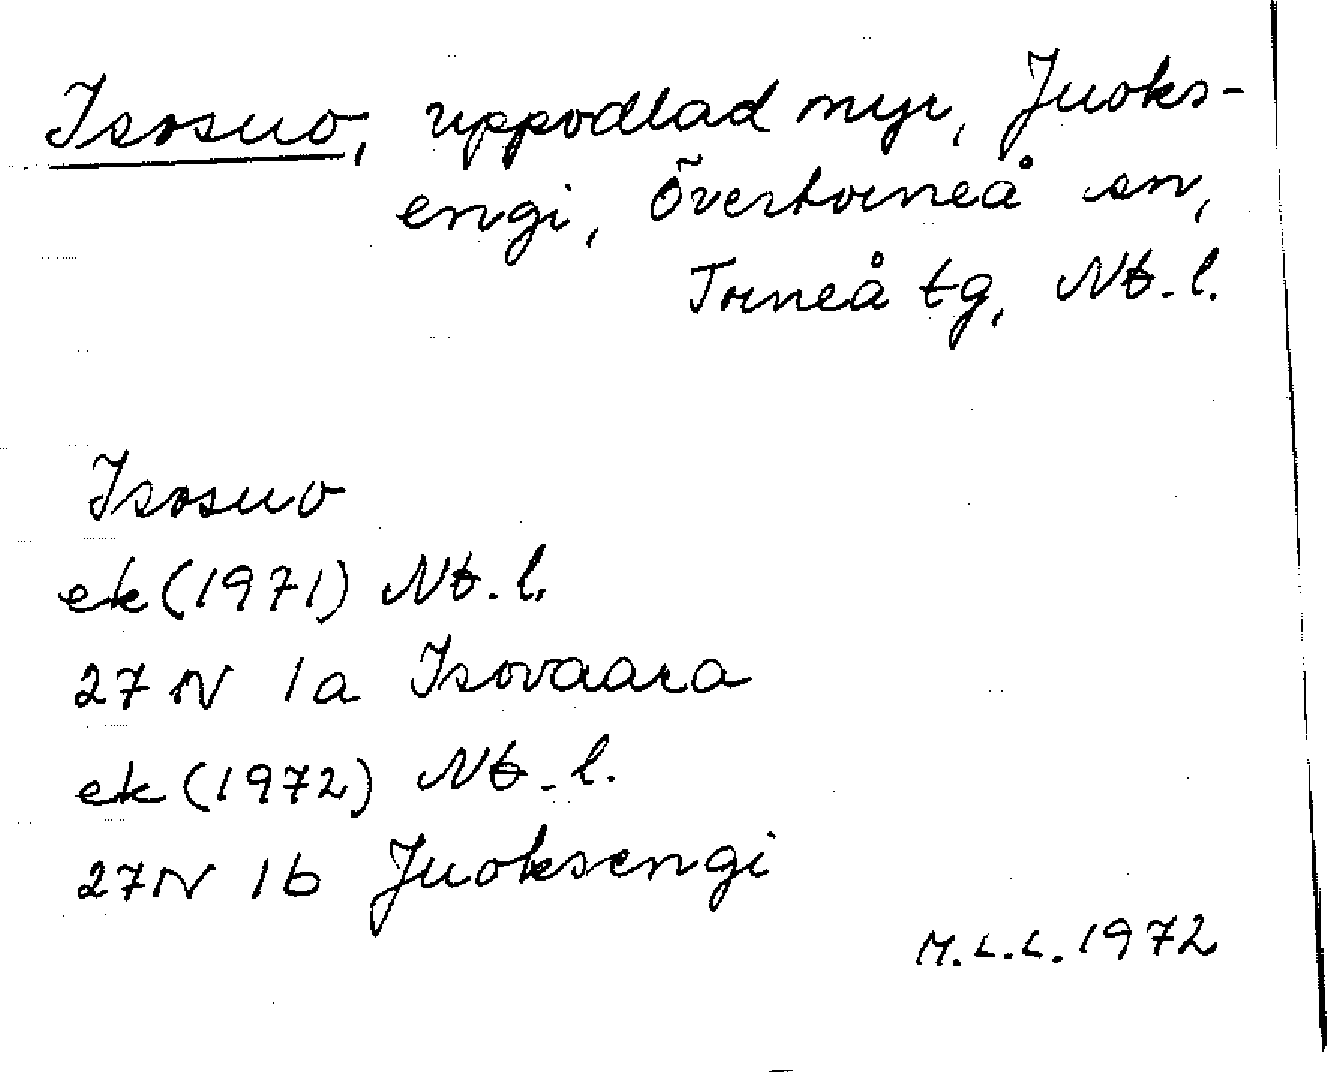 Isosuo, uppodlad myr, Juoks-
engi, Övertorneå sn,
Torneå tg, Nb. l.
Isosuo
ek (1971) Nb. l.
27 N 1a Isovaara
ek (1972) Nb. l.
27 N 1b Juoksengi
M.L.L. 1972